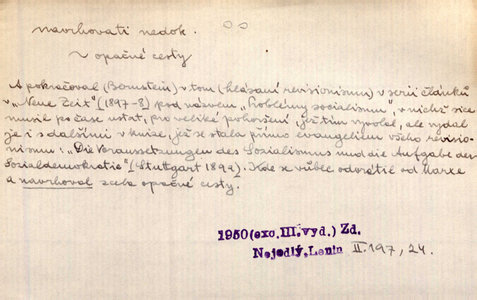 navrhovati nedok.
v opačné cesty
A pokračoval (Bernstein) v tom (hlásání revisionismu) v serii článků
v „Neue Zeit“ (1897-8) pod názvem „Problémy socialismu“, v nichž sice
musil po čase ustat, pro veliké pohoršení, jež tím vyvolal, ale vydal
je i s dalšími v knize, jež se stala přímo evangeliem všeho revisio-
nismu: „Die Voraussetzungen des Sozialismus und die Aufgabe der
Sozialdemokratie“ (Stuttgart 1899). Kde se vůbec odvrátil od Marxe
a navrhoval zcela opačné cesty.
1950 (exc. III. vyd.) Zd.
Nejedlý, Lenin II. 197, 24.